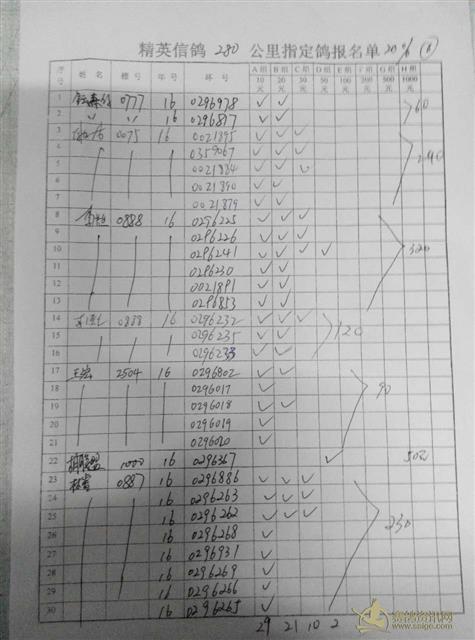 精英信鸽 280 公里指定鸽报名单 20% (6)
序号 姓名 棚号 年号 环号 A组10元 B组20元 C组30元 D组50元 E组100元 F组200元 G组500元 H组1000元
1 0777 16 0296978 ✓ ✓
2 〃 〃 16 0296817 ✓ ✓ 60
3 0075 16 0021895 ✓ ✓ ✓
4 0359067 ✓ ✓ ✓
5 0021884 ✓ ✓ ✓ 240
6 0021890 ✓ ✓
7 0021879 ✓ ✓
8 0888 16 0296225 ✓ ✓ ✓
9 0296226 ✓ ✓ ✓
10 0296241 ✓ ✓ ✓ ✓ 320
11 0296230 ✓ ✓
12 0021891 ✓ ✓
13 0296853 ✓ ✓
14 0888 16 0296232 ✓ ✓ ✓
15 0296235 ✓ ✓ 120
16 0296233 ✓ ✓
17 王宏 2504 16 0296802 ✓ ✓
18 0296017 ✓
19 0296018 ✓ ✓ 90
20 0296019 ✓
21 0296020 ✓
22 1000 16 0296367 ✓ 50
23 0887 16 0296886 ✓ ✓ ✓
24 16 0296263 ✓ ✓ ✓
25 16 0296262 ✓ ✓ ✓ 230
26 16 0296268 ✓
27 16 0296931 ✓
28 16 0296269 ✓
29 16 0296266 ✓
30 16 0296265 ✓
29 21 10 2
赛鸽资讯网
www.saige.com